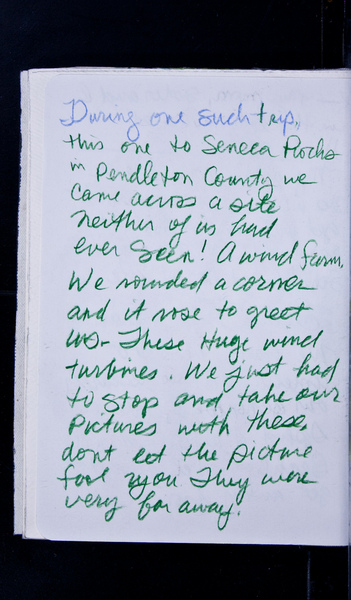 During one such trip,
this one to Seneca Rocks
in Pendleton County we
came across a site
neither of us had
ever seen! A wind farm.
We rounded a corner
and it rose to greet
us- These Huge wind
turbines. We just had
to stop and take our
pictures with these,
dont let the picture
fool you They were
very far away!